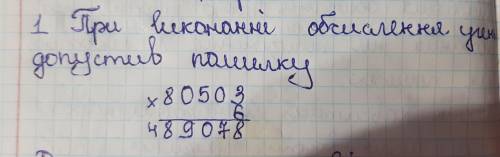 1 При виконанні обчислення учн
допустив помилку
x 80503
6
489078